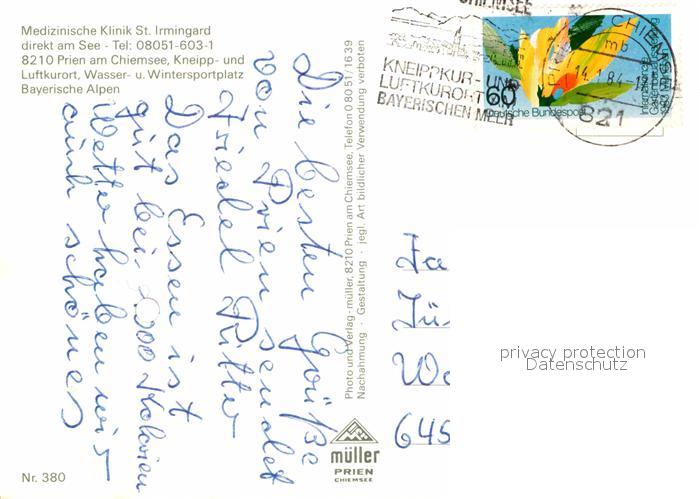 Medizinische Klinik St. Irmingard
direkt am See - Tel: 08051-603-1
8210 Prien am Chiemsee, Kneipp- und
Luftkurort, Wasser- u. Wintersportplatz
Bayerische Alpen
Die besten Grüße
von Prien sendet
Friedel Ritter
Das Essen ist
gut bei 1.000 Kalorien
Wetter haben wir
auch schönes
Nr. 380
Photo und Verlag - müller, 8210 Prien am Chiemsee, Telefon 0 80 51 / 16 39
Nachahmung · Gestaltung · jegl. Art bildlicher Verwendung verboten
müller
PRIEN
CHIEMSEE
CHIEMSEE
KNEIPPKUR- UND
LUFTKURORT
BAYERISCHEN MEER
60
Deutsche Bundespost
mb
14.1.84
821
Ja
Jü-
We
645
privacy protection
Datenschutz